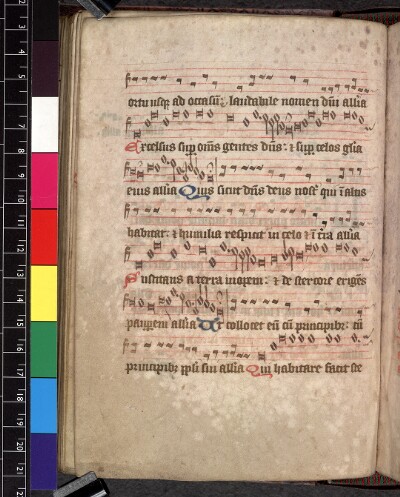 ortu usq; ad occasū: laudabile nomen dn̄i allīa
Excelsus sup om̄s gentes dn̄s: ⁊ sup celos glīa
eius allīa Quis sicut dn̄s deus nost̄ qui ī altis
habitat: ⁊ humilia respicit in celo ⁊ ī t̄ra allīa
Suscitans a terra inopem: ⁊ de stercore erigēs
pauperem allīa Ut collocet eū cū principib: cū
principib; ppl̄i sui allīa Qui habitare facit ste